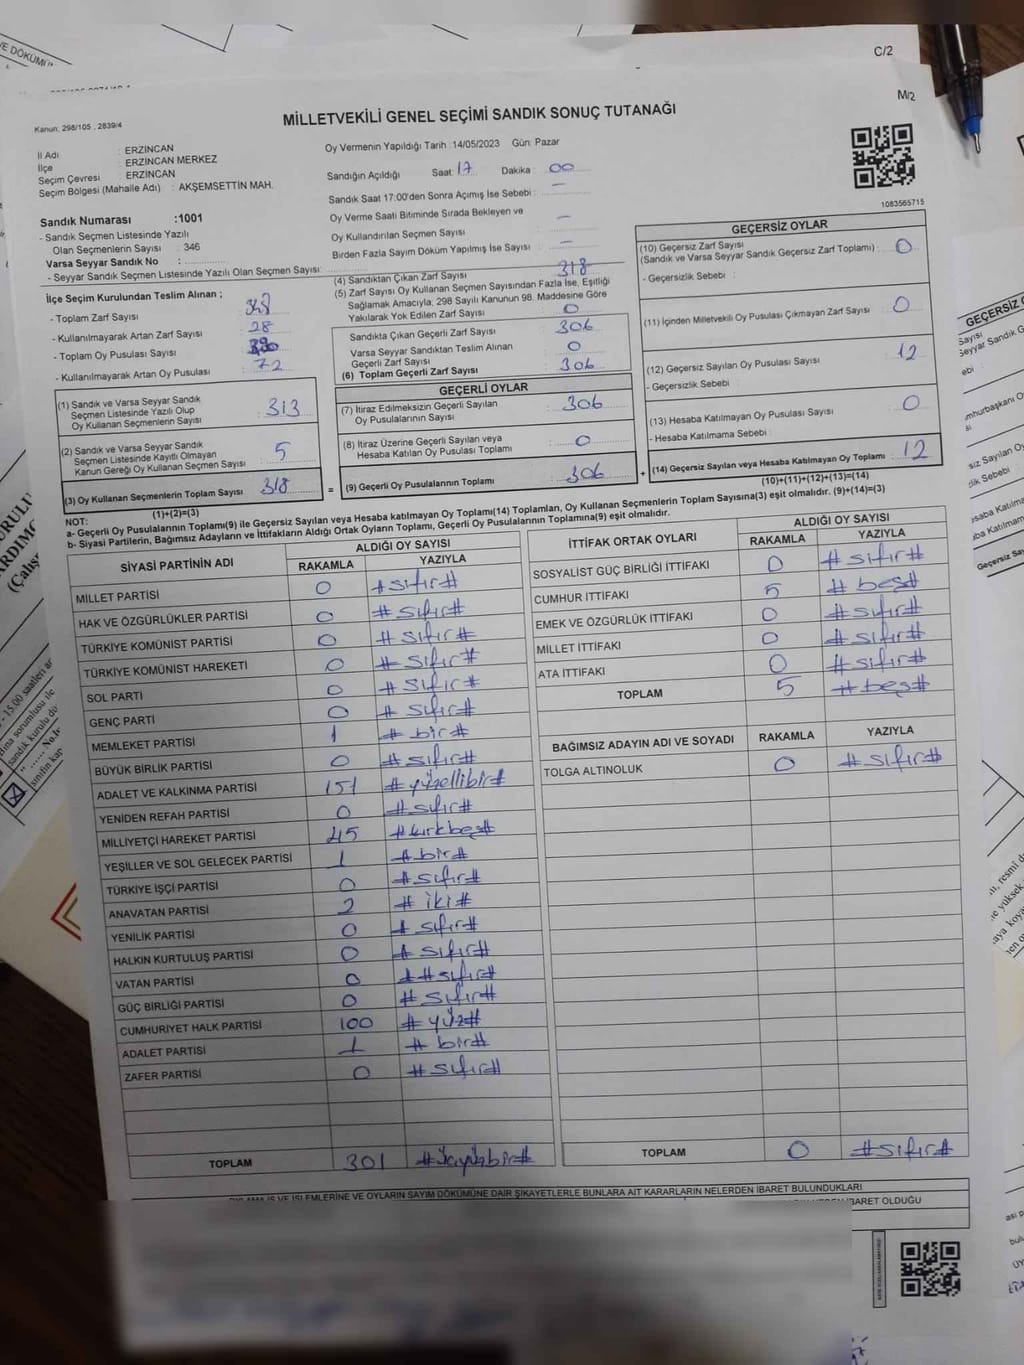 C/2
M/2
Kanun: 298/105 , 2839/4
MİLLETVEKİLİ GENEL SEÇİMİ SANDIK SONUÇ TUTANAĞI
İl Adı : ERZİNCAN
İlçe : ERZİNCAN MERKEZ
Seçim Çevresi : ERZİNCAN
Seçim Bölgesi (Mahalle Adı) : AKŞEMSETTİN MAH.
Sandık Numarası :1001
- Sandık Seçmen Listesinde Yazılı
Olan Seçmenlerin Sayısı : 346
Varsa Seyyar Sandık No :
- Seyyar Sandık Seçmen Listesinde Yazılı Olan Seçmen Sayısı:
Oy Vermenin Yapıldığı Tarih :14/05/2023 Gün: Pazar
Sandığın Açıldığı Saat: 17 Dakika : 00
Sandık Saat 17:00'den Sonra Açılmış İse Sebebi : —
Oy Verme Saati Bitiminde Sırada Bekleyen ve
Oy Kullandırılan Seçmen Sayısı : —
Birden Fazla Sayım Döküm Yapılmış İse Sayısı : —
1083565715
İlçe Seçim Kurulundan Teslim Alınan ;
- Toplam Zarf Sayısı :
- Kullanılmayarak Artan Zarf Sayısı : 28
- Toplam Oy Pusulası Sayısı :
- Kullanılmayarak Artan Oy Pusulası : 72
(1) Sandık ve Varsa Seyyar Sandık
Seçmen Listesinde Yazılı Olup
Oy Kullanan Seçmenlerin Sayısı : 313
(2) Sandık ve Varsa Seyyar Sandık
Seçmen Listesinde Kayıtlı Olmayan
Kanun Gereği Oy Kullanan Seçmen Sayısı : 5
(3) Oy Kullanan Seçmenlerin Toplam Sayısı : 318
(1)+(2)=(3)
(4) Sandıktan Çıkan Zarf Sayısı : 318
(5) Zarf Sayısı Oy Kullanan Seçmen Sayısından Fazla İse, Eşitliği
Sağlamak Amacıyla; 298 Sayılı Kanunun 98. Maddesine Göre
Yakılarak Yok Edilen Zarf Sayısı : 0
Sandıkta Çıkan Geçerli Zarf Sayısı : 306
Varsa Seyyar Sandıktan Teslim Alınan
Geçerli Zarf Sayısı : 0
(6) Toplam Geçerli Zarf Sayısı : 306
GEÇERLİ OYLAR
(7) İtiraz Edilmeksizin Geçerli Sayılan
Oy Pusulalarının Sayısı : 306
(8) İtiraz Üzerine Geçerli Sayılan veya
Hesaba Katılan Oy Pusulası Toplamı : 0
= (9) Geçerli Oy Pusulalarının Toplamı : 306 +
GEÇERSİZ OYLAR
(10) Geçersiz Zarf Sayısı
(Sandık ve Varsa Seyyar Sandık Geçersiz Zarf Toplamı) : 0
- Geçersizlik Sebebi :
(11) İçinden Milletvekili Oy Pusulası Çıkmayan Zarf Sayısı : 0
(12) Geçersiz Sayılan Oy Pusulası Sayısı : 12
- Geçersizlik Sebebi :
(13) Hesaba Katılmayan Oy Pusulası Sayısı : 0
- Hesaba Katılmama Sebebi :
(14) Geçersiz Sayılan veya Hesaba Katılmayan Oy Toplamı : 12
(10)+(11)+(12)+(13)=(14)
NOT:
a- Geçerli Oy Pusulalarının Toplamı(9) ile Geçersiz Sayılan veya Hesaba katılmayan Oy Toplamı(14) Toplamları, Oy Kullanan Seçmenlerin Toplam Sayısına(3) eşit olmalıdır. (9)+(14)=(3)
b- Siyasi Partilerin, Bağımsız Adayların ve İttifakların Aldığı Ortak Oyların Toplamı, Geçerli Oy Pusulalarının Toplamına(9) eşit olmalıdır.
SİYASİ PARTİNİN ADI ALDIĞI OY SAYISI
RAKAMLA YAZIYLA
MİLLET PARTİSİ 0 #sıfır#
HAK VE ÖZGÜRLÜKLER PARTİSİ 0 #sıfır#
TÜRKİYE KOMÜNİST PARTİSİ 0 #sıfır#
TÜRKİYE KOMÜNİST HAREKETİ 0 #sıfır#
SOL PARTİ 0 #sıfır#
GENÇ PARTİ 0 #sıfır#
MEMLEKET PARTİSİ 1 #bir#
BÜYÜK BİRLİK PARTİSİ 0 #sıfır#
ADALET VE KALKINMA PARTİSİ 151 #yüzellibir#
YENİDEN REFAH PARTİSİ 0 #sıfır#
MİLLİYETÇİ HAREKET PARTİSİ 45 #kırkbeş#
YEŞİLLER VE SOL GELECEK PARTİSİ 1 #bir#
TÜRKİYE İŞÇİ PARTİSİ 0 #sıfır#
ANAVATAN PARTİSİ 2 #iki#
YENİLİK PARTİSİ 0 #sıfır#
HALKIN KURTULUŞ PARTİSİ 0 #sıfır#
VATAN PARTİSİ 0 ##sıfır#
GÜÇ BİRLİĞİ PARTİSİ 0 #sıfır#
CUMHURİYET HALK PARTİSİ 100 #yüz#
ADALET PARTİSİ 1 #bir#
ZAFER PARTİSİ 0 #sıfır#
TOPLAM 301 #üçyüzbir#
İTTİFAK ORTAK OYLARI ALDIĞI OY SAYISI
RAKAMLA YAZIYLA
SOSYALİST GÜÇ BİRLİĞİ İTTİFAKI 0 #sıfır#
CUMHUR İTTİFAKI 5 #beş#
EMEK VE ÖZGÜRLÜK İTTİFAKI 0 #sıfır#
MİLLET İTTİFAKI 0 #sıfır#
ATA İTTİFAKI 0 #sıfır#
TOPLAM 5 #beş#
BAĞIMSIZ ADAYIN ADI VE SOYADI RAKAMLA YAZIYLA
TOLGA ALTINOLUK 0 #sıfır#
TOPLAM 0 #sıfır#
İŞ VE İŞLEMLERİNE VE OYLARIN SAYIM DÖKÜMÜNE DAİR ŞİKAYETLERLE BUNLARA AİT KARARLARIN NELERDEN İBARET BULUNDUKLARI
İBARET OLDUĞU